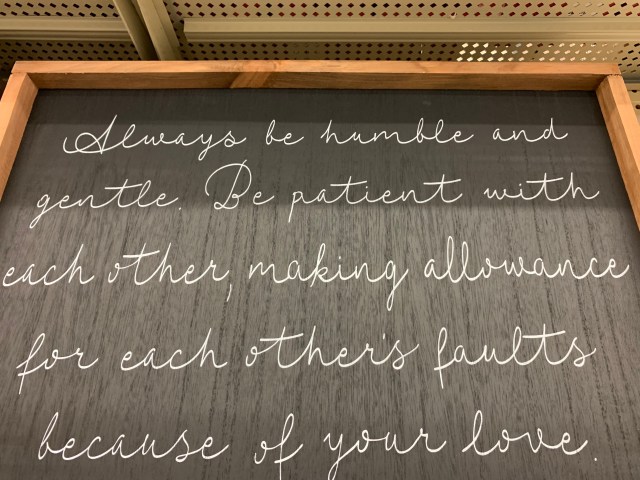 Always be humble and
gentle. Be patient with
each other, making allowance
for each other's faults
because of your love.